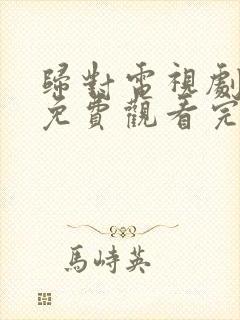 歸對電視劇
免費觀看完
馬峙英